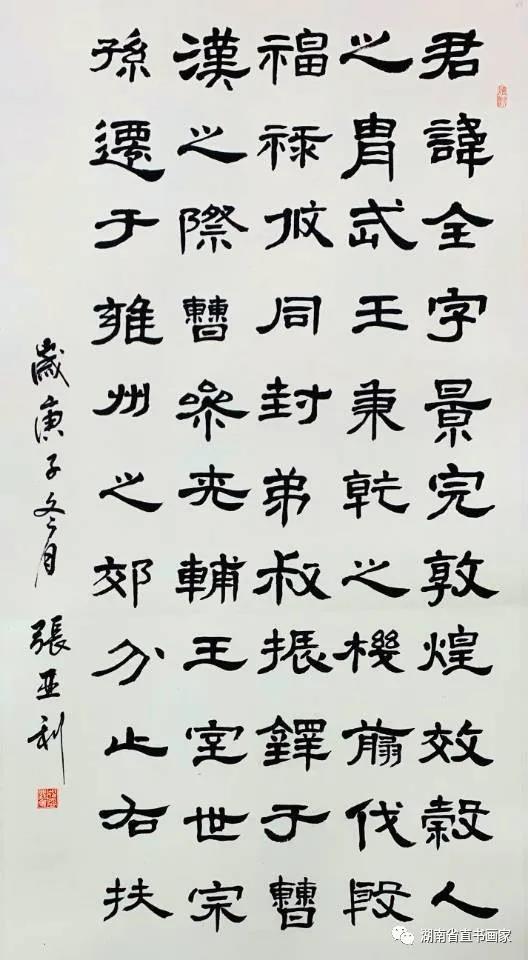 君諱全字景完敦煌效穀人
之胄武王秉乾之機翦伐殷
福祿攸同封弟叔振鐸于曹
漢之際曹參夾輔王室世宗
孫遷于雍州之郊分止右扶
歲庚子冬月 張亚利
湖南省直书画家